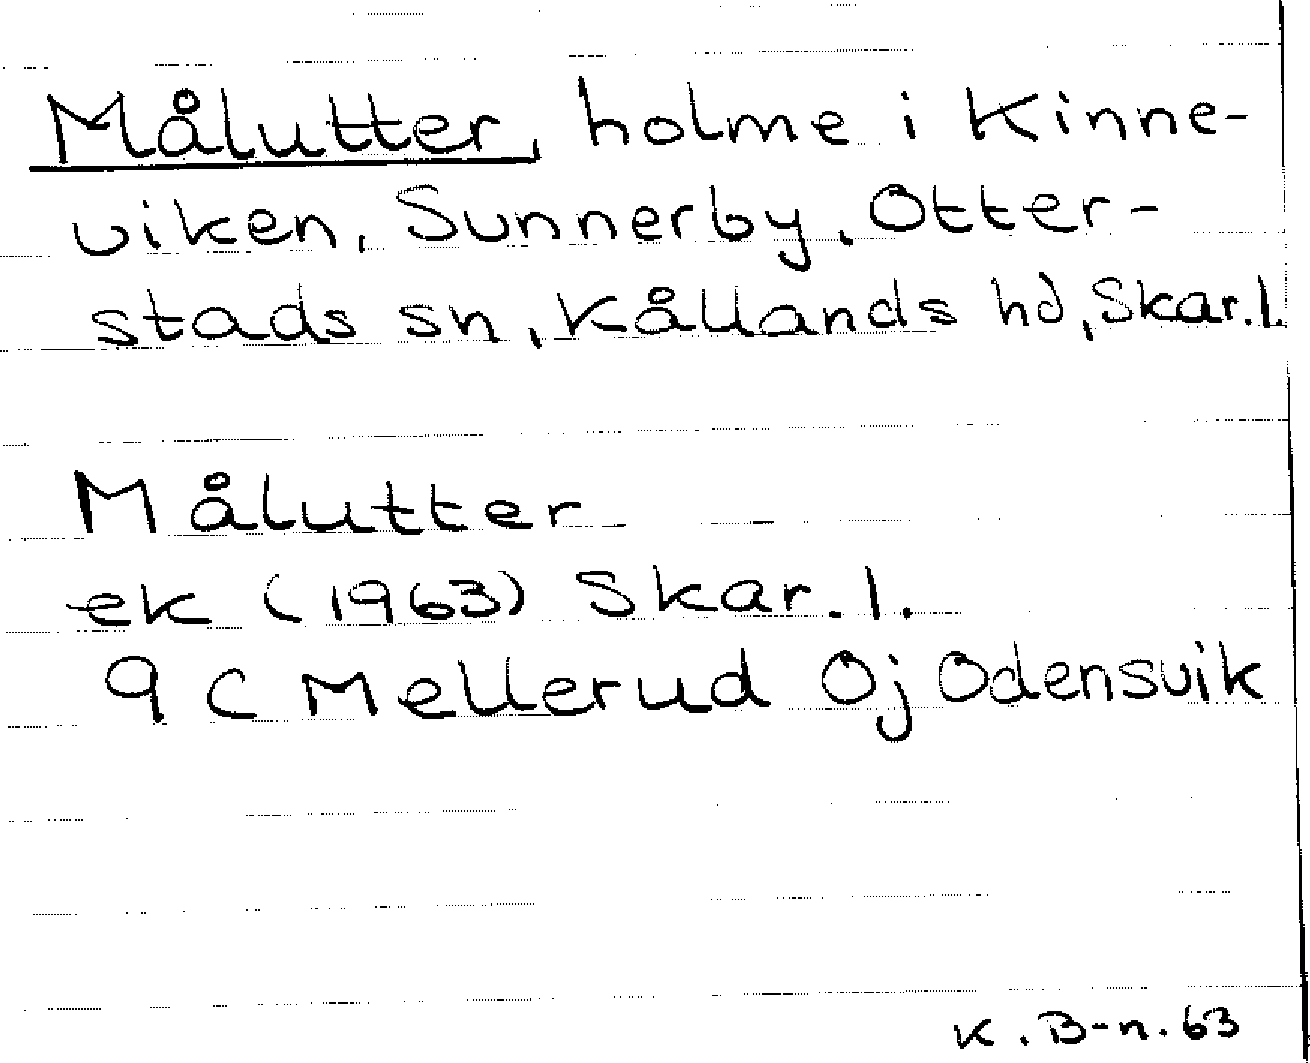 Målutter, holme i Kinne-
viken, Sunnerby, Otter-
stads sn, Kållands hd, Skar.l.
Målutter
ek (1963) Skar.l.
9 C Mellerud 0j Odensvik
K.B-n.63